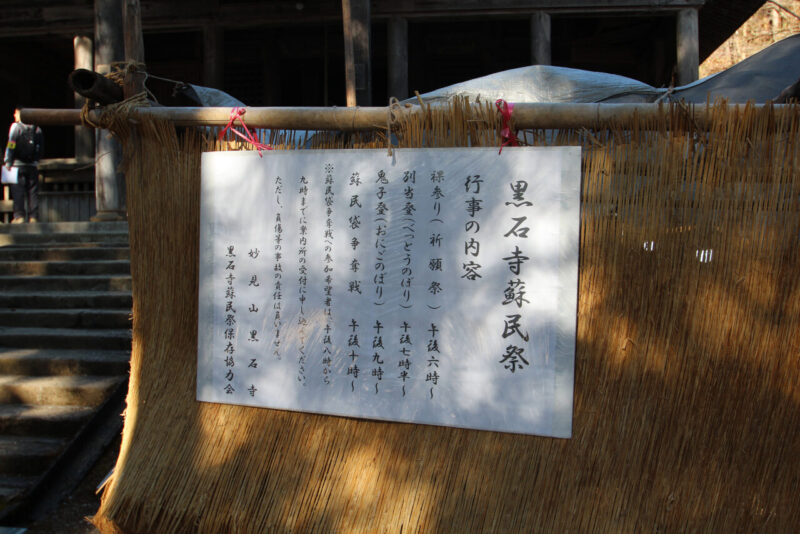 黒石寺蘇民祭
行事の内容
裸参り（祈願祭）　午後六時～
別当登（べっとうのぼり）　午後七時半～
鬼子登（おにごのぼり）　午後九時～
蘇民袋争奪戦　午後十時～
※蘇民袋争奪戦への参加希望者は、午後八時から
九時までに案内所の受付に申し込んでください。
ただし、負傷等の事故の責任は負いません。
妙見山黒石寺
黒石寺蘇民祭保存協力会